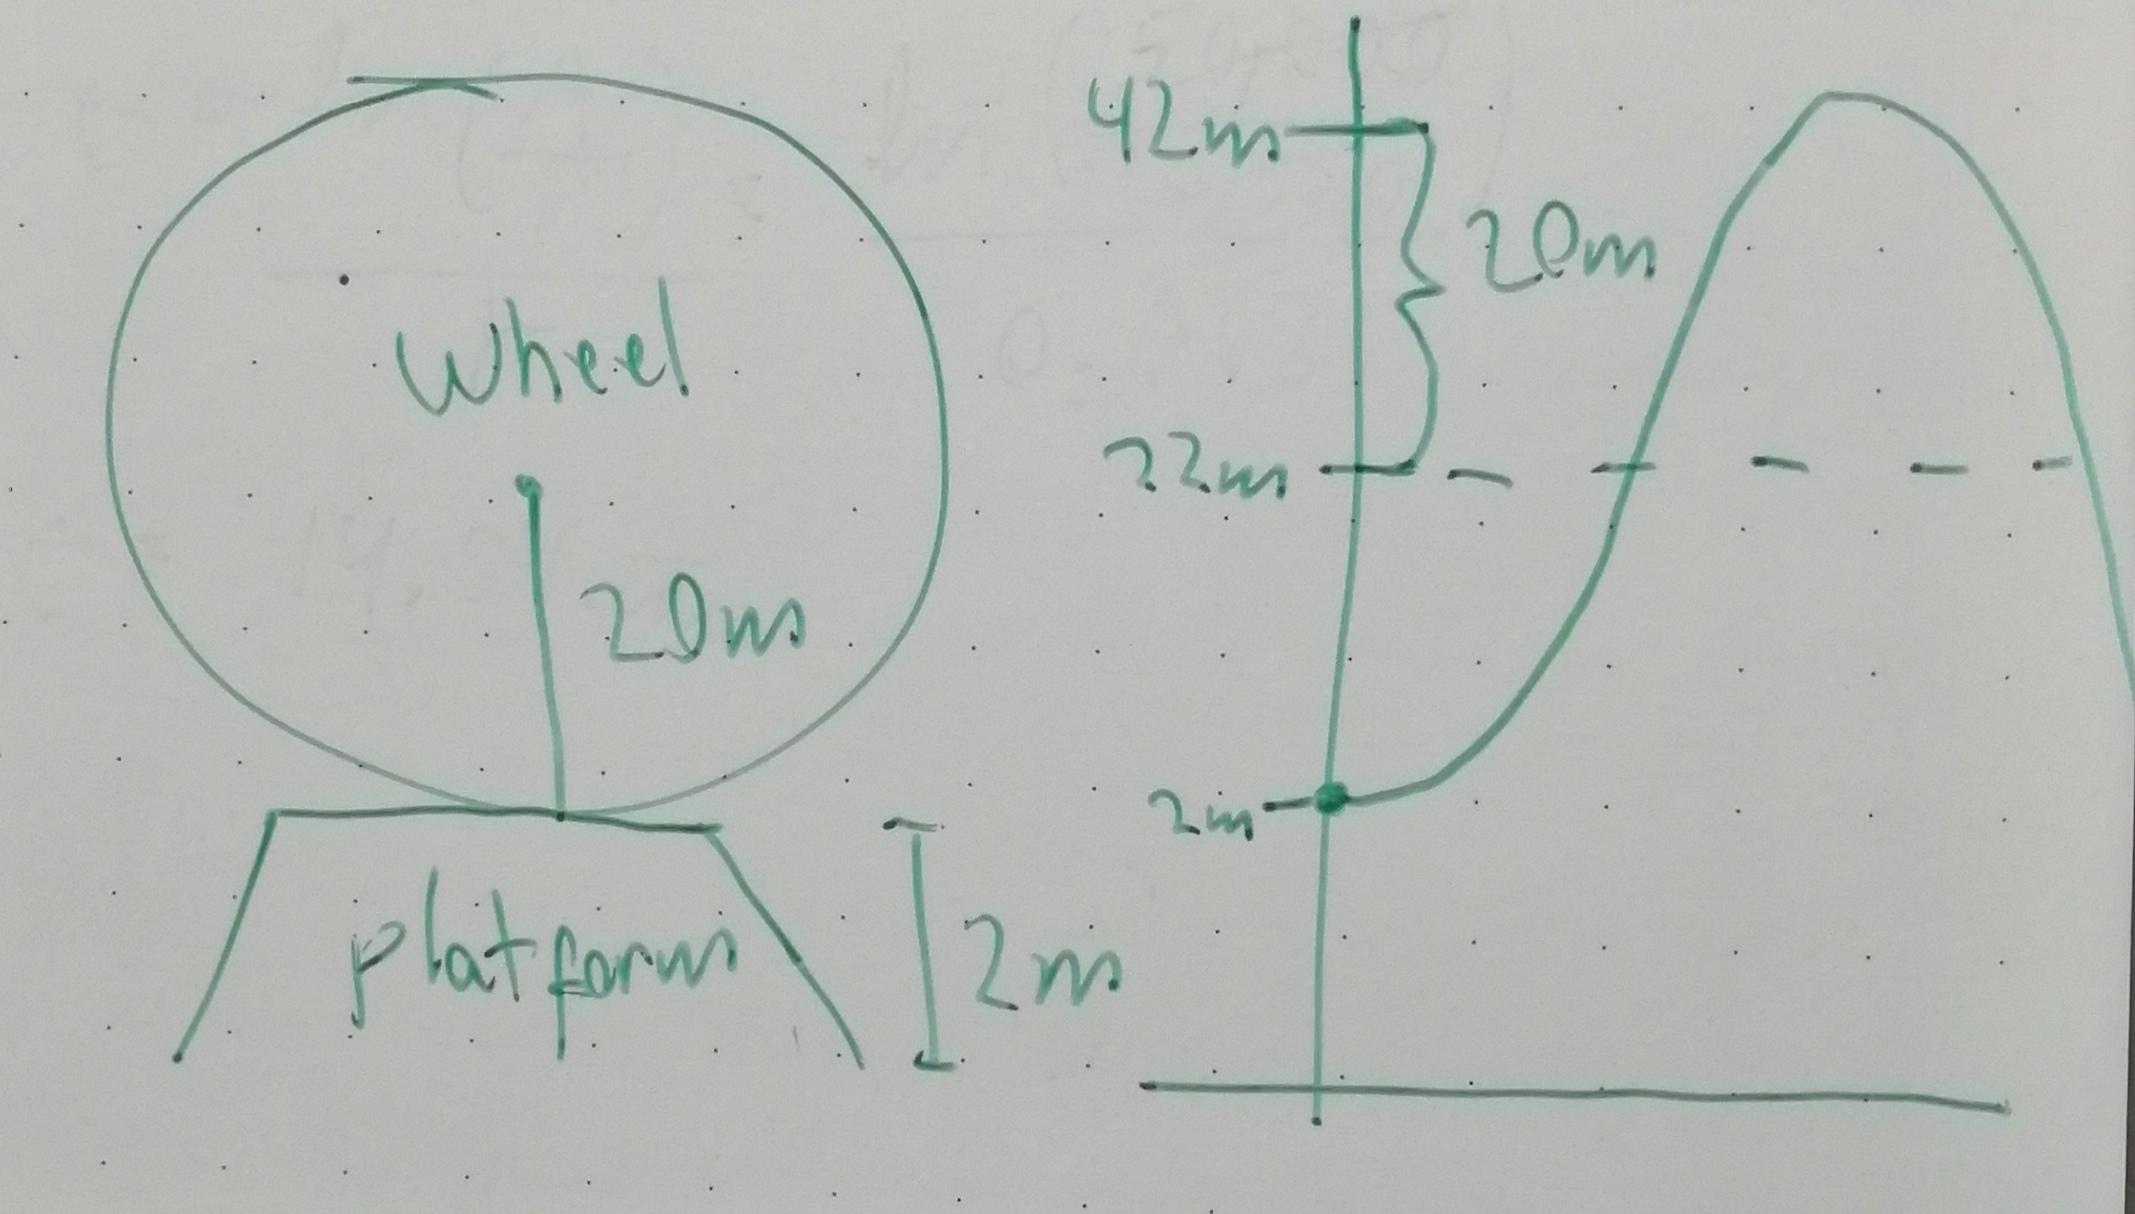 wheel
20m
platform
2m
42m
20m
22m
2m